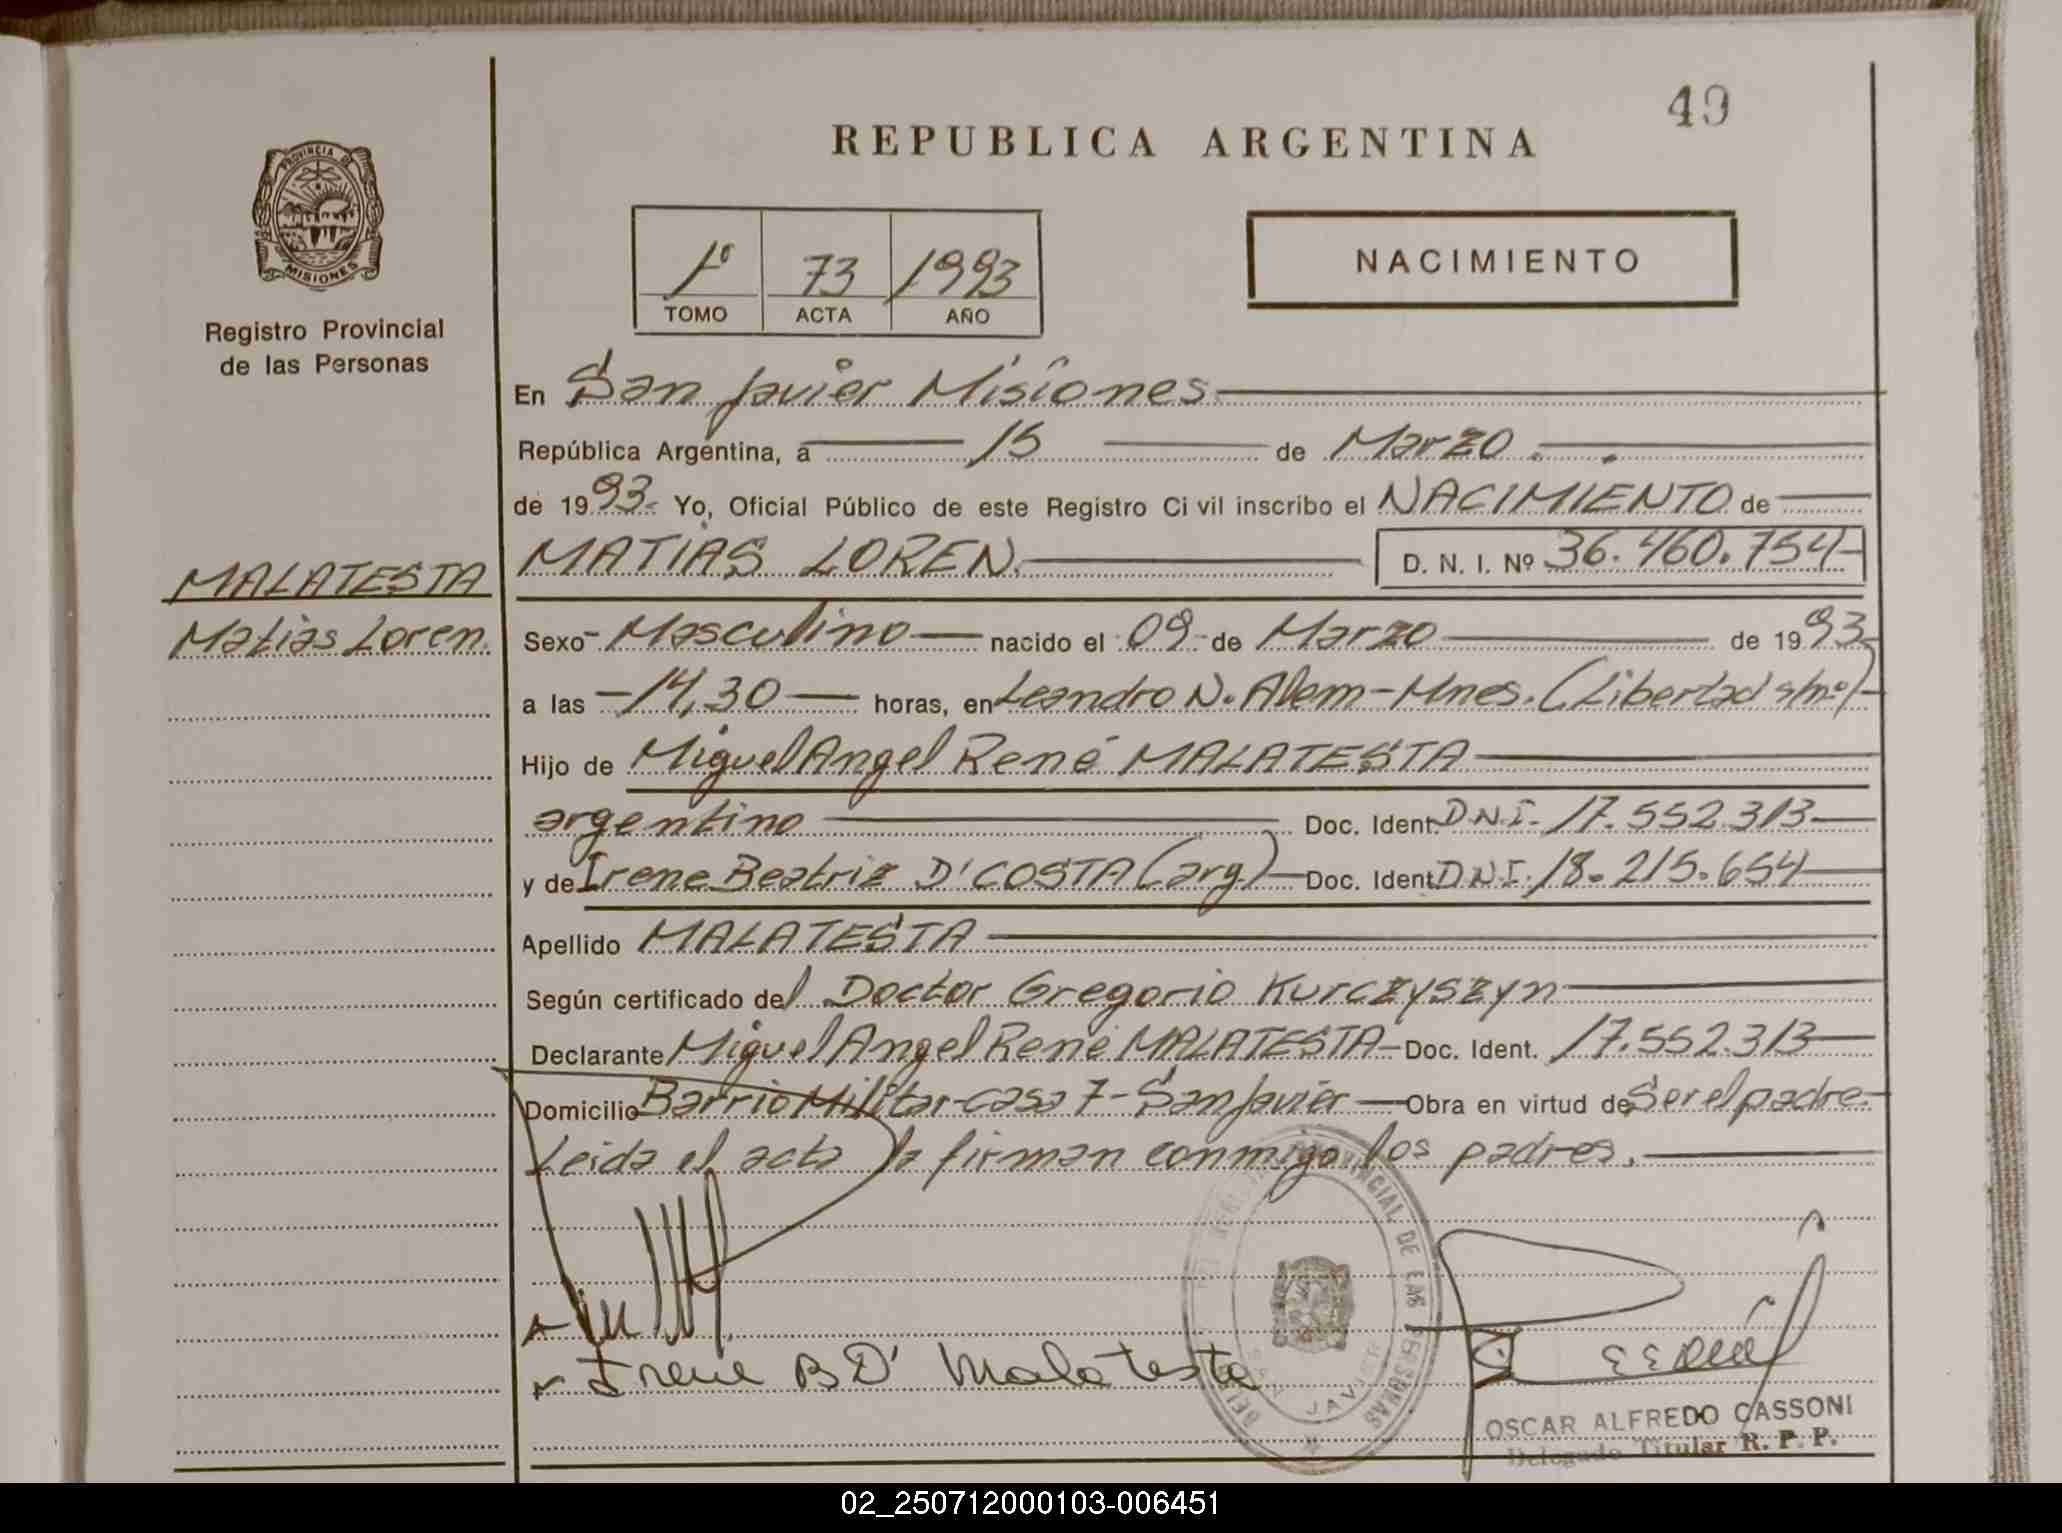 49
REPUBLICA ARGENTINA
PROVINCIA DE
MISIONES
1º 73 1993
TOMO ACTA AÑO
NACIMIENTO
Registro Provincial
de las Personas
En San Javier Misiones
República Argentina, a 15 de Marzo
de 1993. Yo, Oficial Público de este Registro Civil inscribo el NACIMIENTO de
MATIAS LOREN. D. N. I. Nº 36.460.754
MALATESTA
Matias Loren.
Sexo Masculino nacido el 09 de Marzo de 1993
a las 14,30 horas, en Leandro N. Alem-Mnes. (Libertad s/nº)
Hijo de Miguel Angel René MALATESTA
argentino Doc. Ident. D.N.I. 17.552.313
y de Irene Beatriz D'COSTA (arg) Doc. Ident. D.N.I. 18.215.654
Apellido MALATESTA
Según certificado del Doctor Gregorio Kurczyszyn
Declarante Miguel Angel René MALATESTA Doc. Ident. 17.552.313
Domicilio Barrio Militar-casa 7-San Javier Obra en virtud de Ser el padre.
Leida el acta la firman conmigo los padres.
PROVINCIAL DE LAS PERSONAS
JAVIER
Irene B D' Malatesta
OSCAR ALFREDO CASSONI
Delegado Titular R. P. P.
02_250712000103-006451